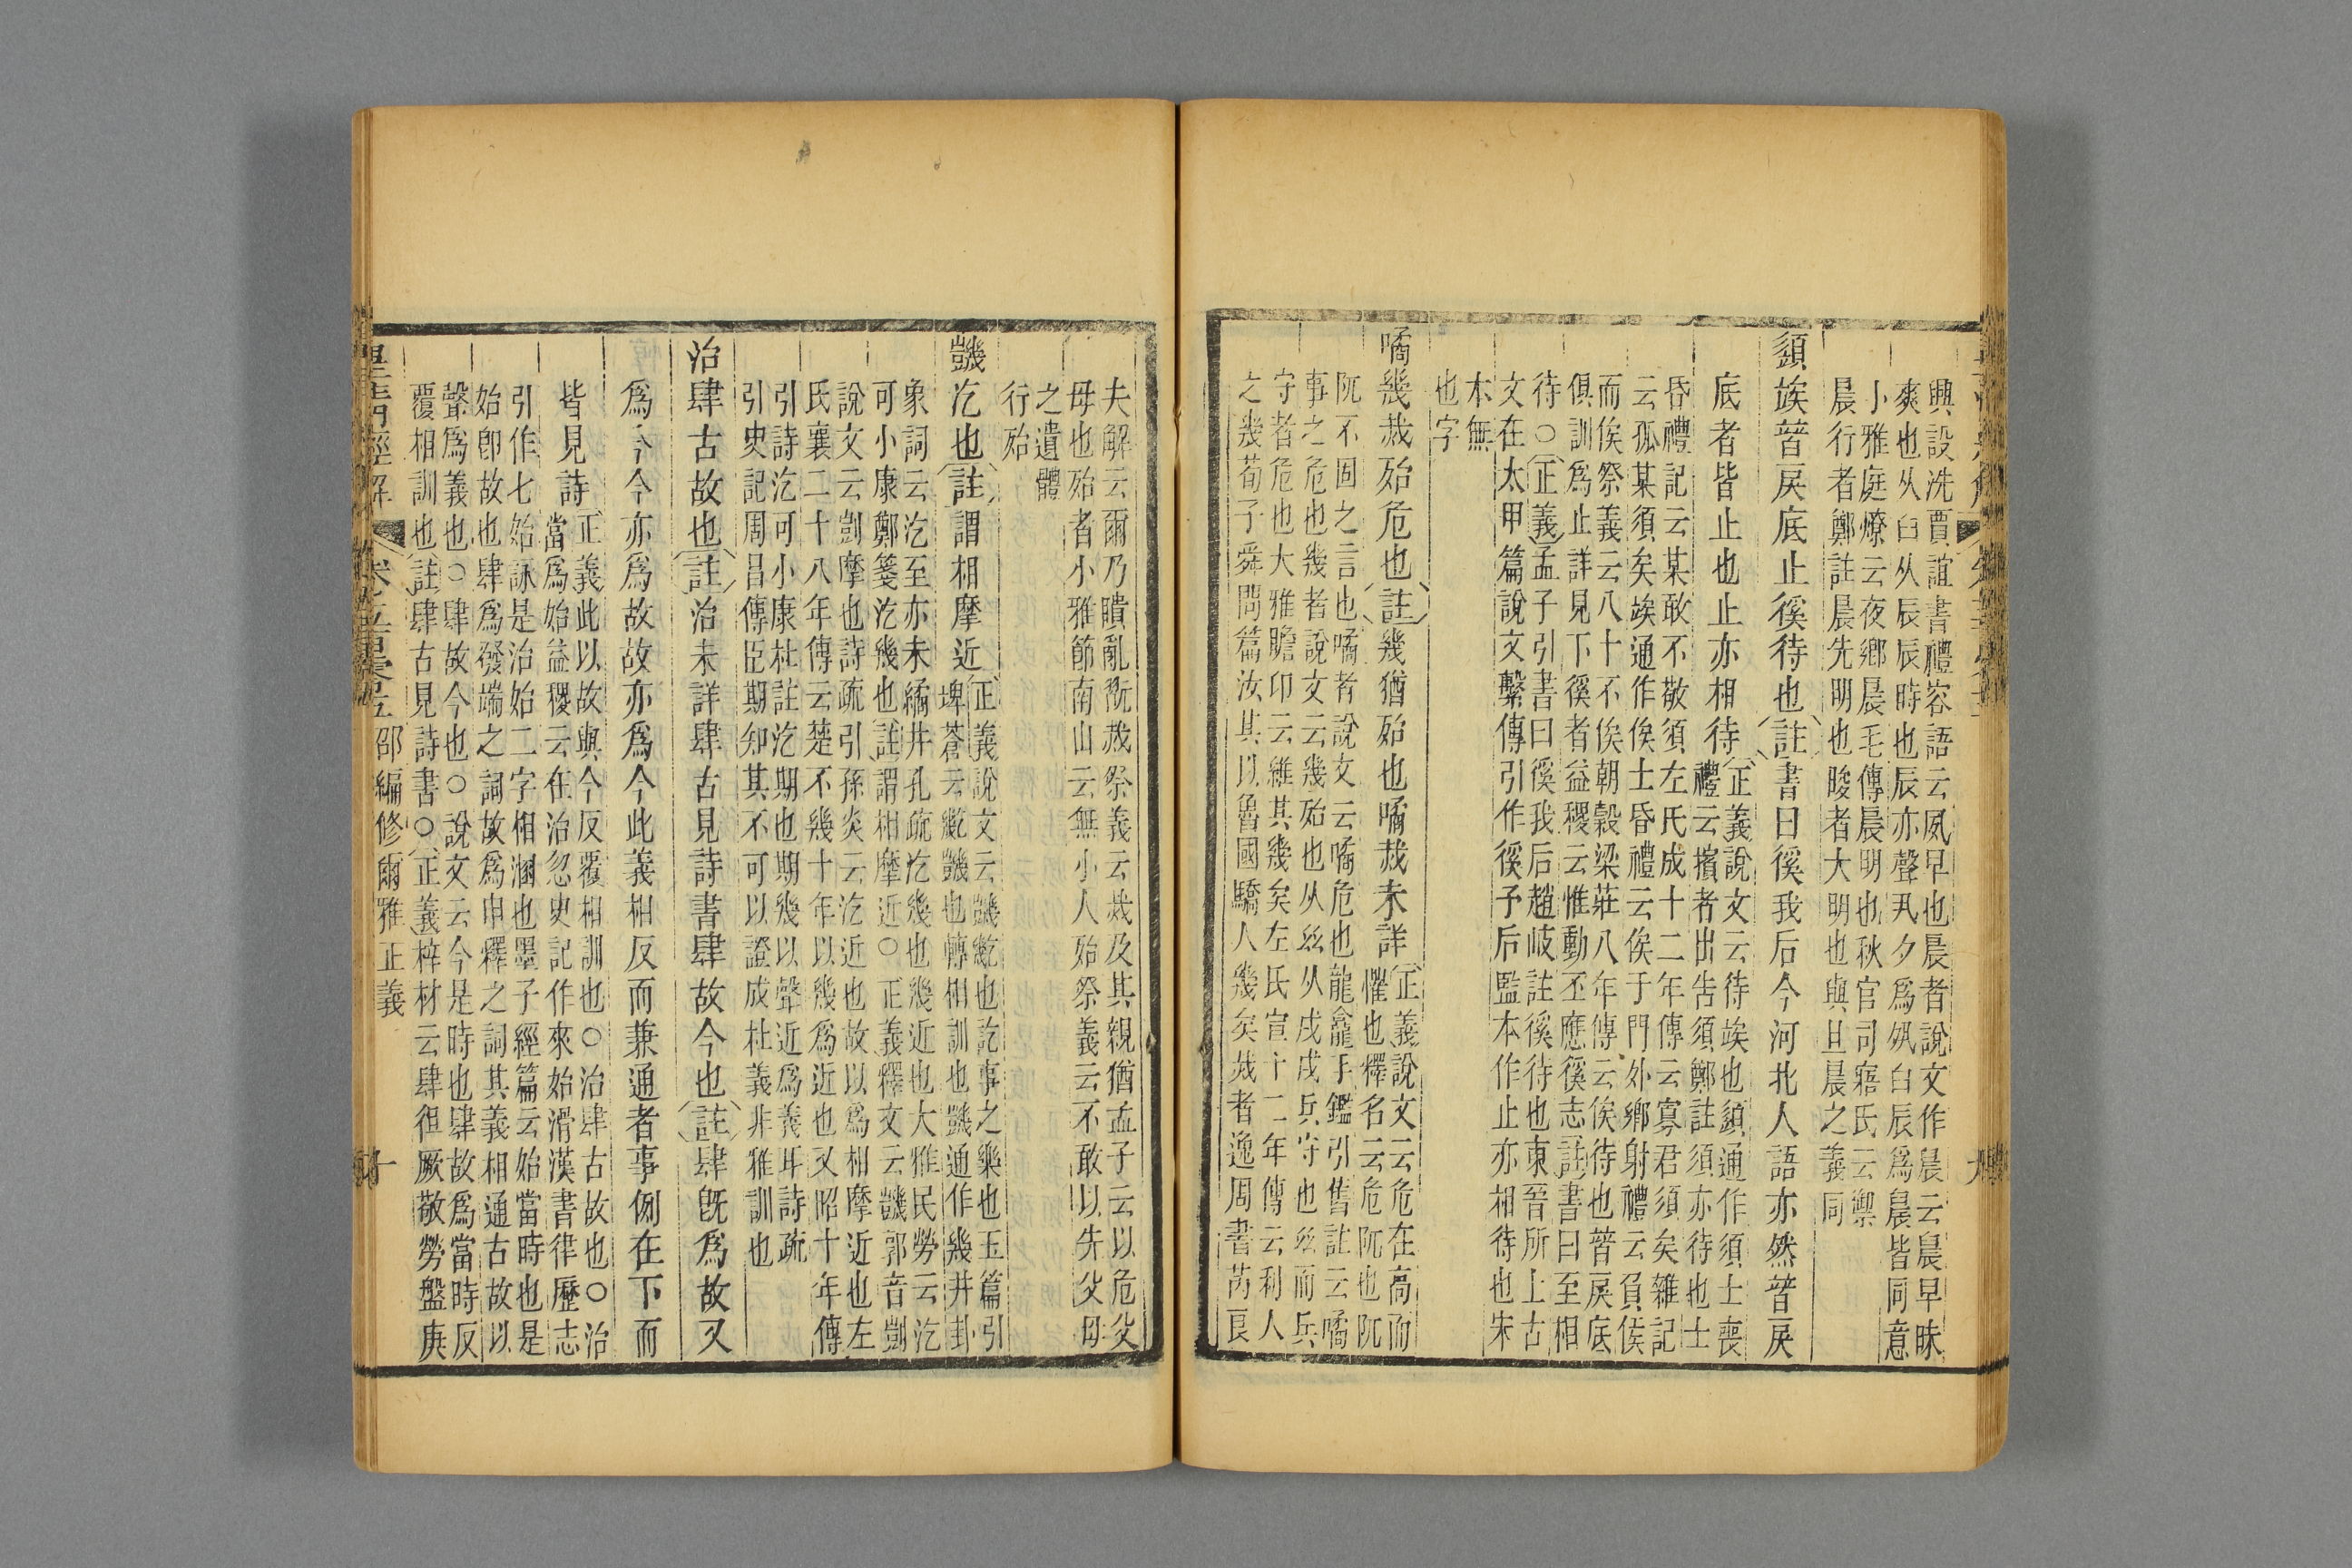 興設洗賈誼書禮容語云夙早也晨者說文作晨云晨早昧
爽也从臼从辰辰時也辰亦聲丮夕爲𡖊臼辰爲晨皆同意
小雅庭燎云夜鄉晨毛傳晨明也秋官司寤氏云禦
晨行者鄭註晨先明也晙者大明也與旦晨之義同
頾竢替戾底止徯待也註書曰徯我后今河北人語亦然替戾
底者皆止也止亦相待
正義說文云待竢也䇓通作須士喪
禮云擯者出告須鄭註須亦待也士
昏禮記云某敢不敬須左氏成十二年傳云寡君須矣雜記
云孤某須矣竢通作俟士昏禮云俟于門外鄉射禮云負侯
而俟祭義云八十不俟朝穀梁莊八年傳云俟待也替戾底
俱訓爲止詳見下徯者益稷云惟動丕應徯志註書曰至相
待○正義孟子引書曰徯我后趙岐註徯待也東晉所上古
文在太甲篇說文繫傳引作徯予后監本作止亦相待也宋
本無
也字
噊幾烖殆危也註幾猶殆也噊烖未詳
正義說文云危在高而
懼也釋名云危阢也阢
阢不固之言也噊者說文云噊危也龍龕手鑑引舊註云噊
事之危也幾者說文云幾殆也从𢆶从戍戍兵守也𢆶而兵
守者危也大雅瞻卬云維其幾矣左氏宣十二年傳云利人
之幾荀子舜問篇汝其以魯國驕人幾矣烖者逸周書芮良
夫解云爾乃聵亂翫烖祭義云烖及其親猶孟子云以危父
母也殆者小雅節南山云無小人殆祭義云不敢以先父母
之遺體
行殆
譏汔也註謂相摩近
正義說文云䡾䡾也訖事之樂也玉篇引
埤蒼云䡾䡾也轉相訓也䡾通作幾井卦
象詞云汔至亦未繘井孔疏汔幾也幾近也大雅民勞云汔
可小康鄭箋汔幾也註謂相摩近○正義釋文云䡾郭音剴
說文云剴摩也詩疏引孫炎云汔近也故以爲相摩近也左
氏襄二十八年傳云楚不幾十年以幾爲近也又昭十年傳
引詩汔可小康杜註汔期也期幾以聲近爲義耳詩疏
引史記周昌傳臣期知其不可以證成杜義非雅訓也
治肆古故也註治未詳肆古見詩書肆故今也註肆旣爲故又
爲今今亦爲故故亦爲今此義相反而兼通者事例在下而
皆見詩
正義此以故與今反覆相訓也○治肆古故也○治
當爲始益稷云在治忽史記作來始滑漢書律歷志
引作七始詠是治始二字相溷也墨子經篇云始當時也是
始卽故也肆爲發端之詞故爲申釋之詞其義相通古故以
聲爲義也○肆故今也○說文云今是時也肆故爲當時反
覆相訓也註肆古見詩書○正義梓材云肆徂厥敬勞盤庚
邵編修爾雅正義